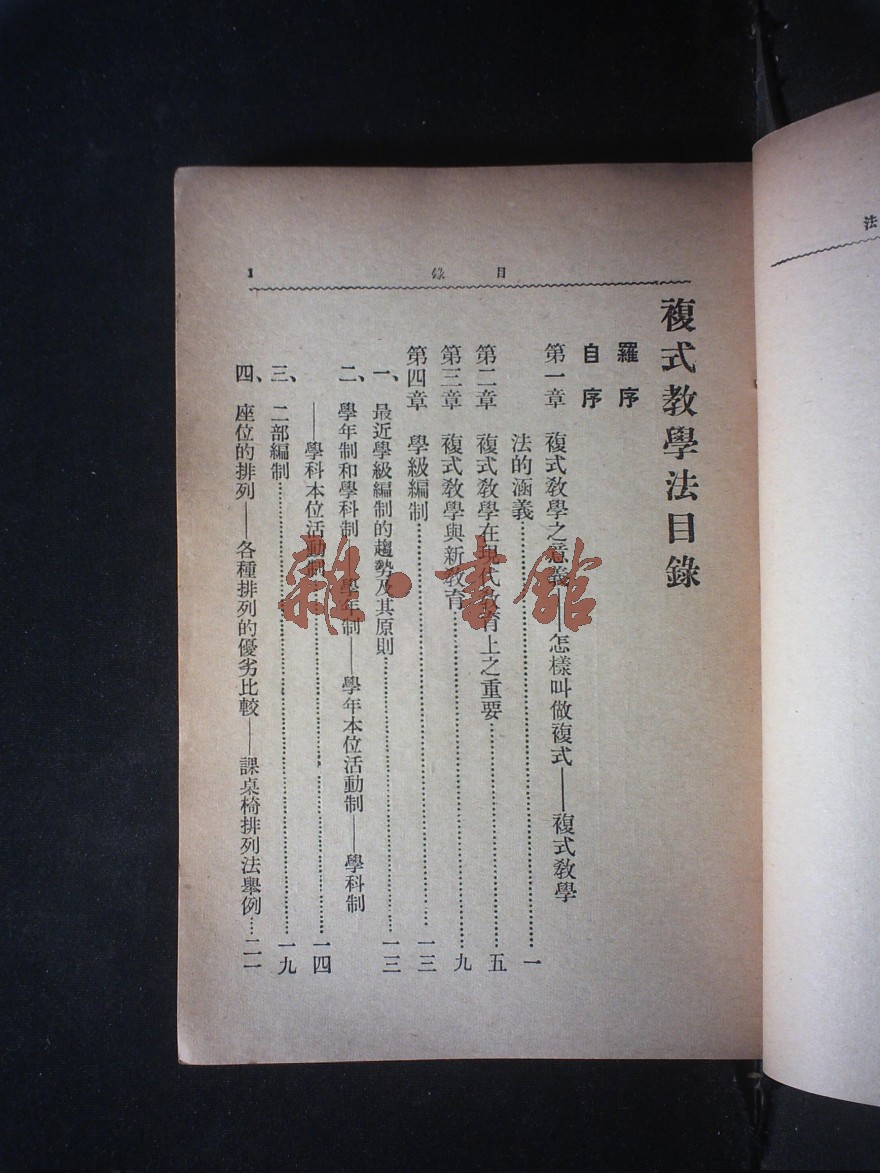 目錄
1
複式教學法目錄
羅序
自序
第一章 複式教學之意義——怎樣叫做複式——複式教學
法的涵義……一
第二章 複式教學在現代教育上之重要……五
第三章 複式教學與新教育……九
第四章 學級編制……一三
一、最近學級編制的趨勢及其原則……一三
二、學年制和學科制——學年制——學年本位活動制——學科制
——學科本位活動制……一四
三、二部編制……一九
四、座位的排列——各種排列的優劣比較——課桌椅排列法舉例……二一
法
雜·書館